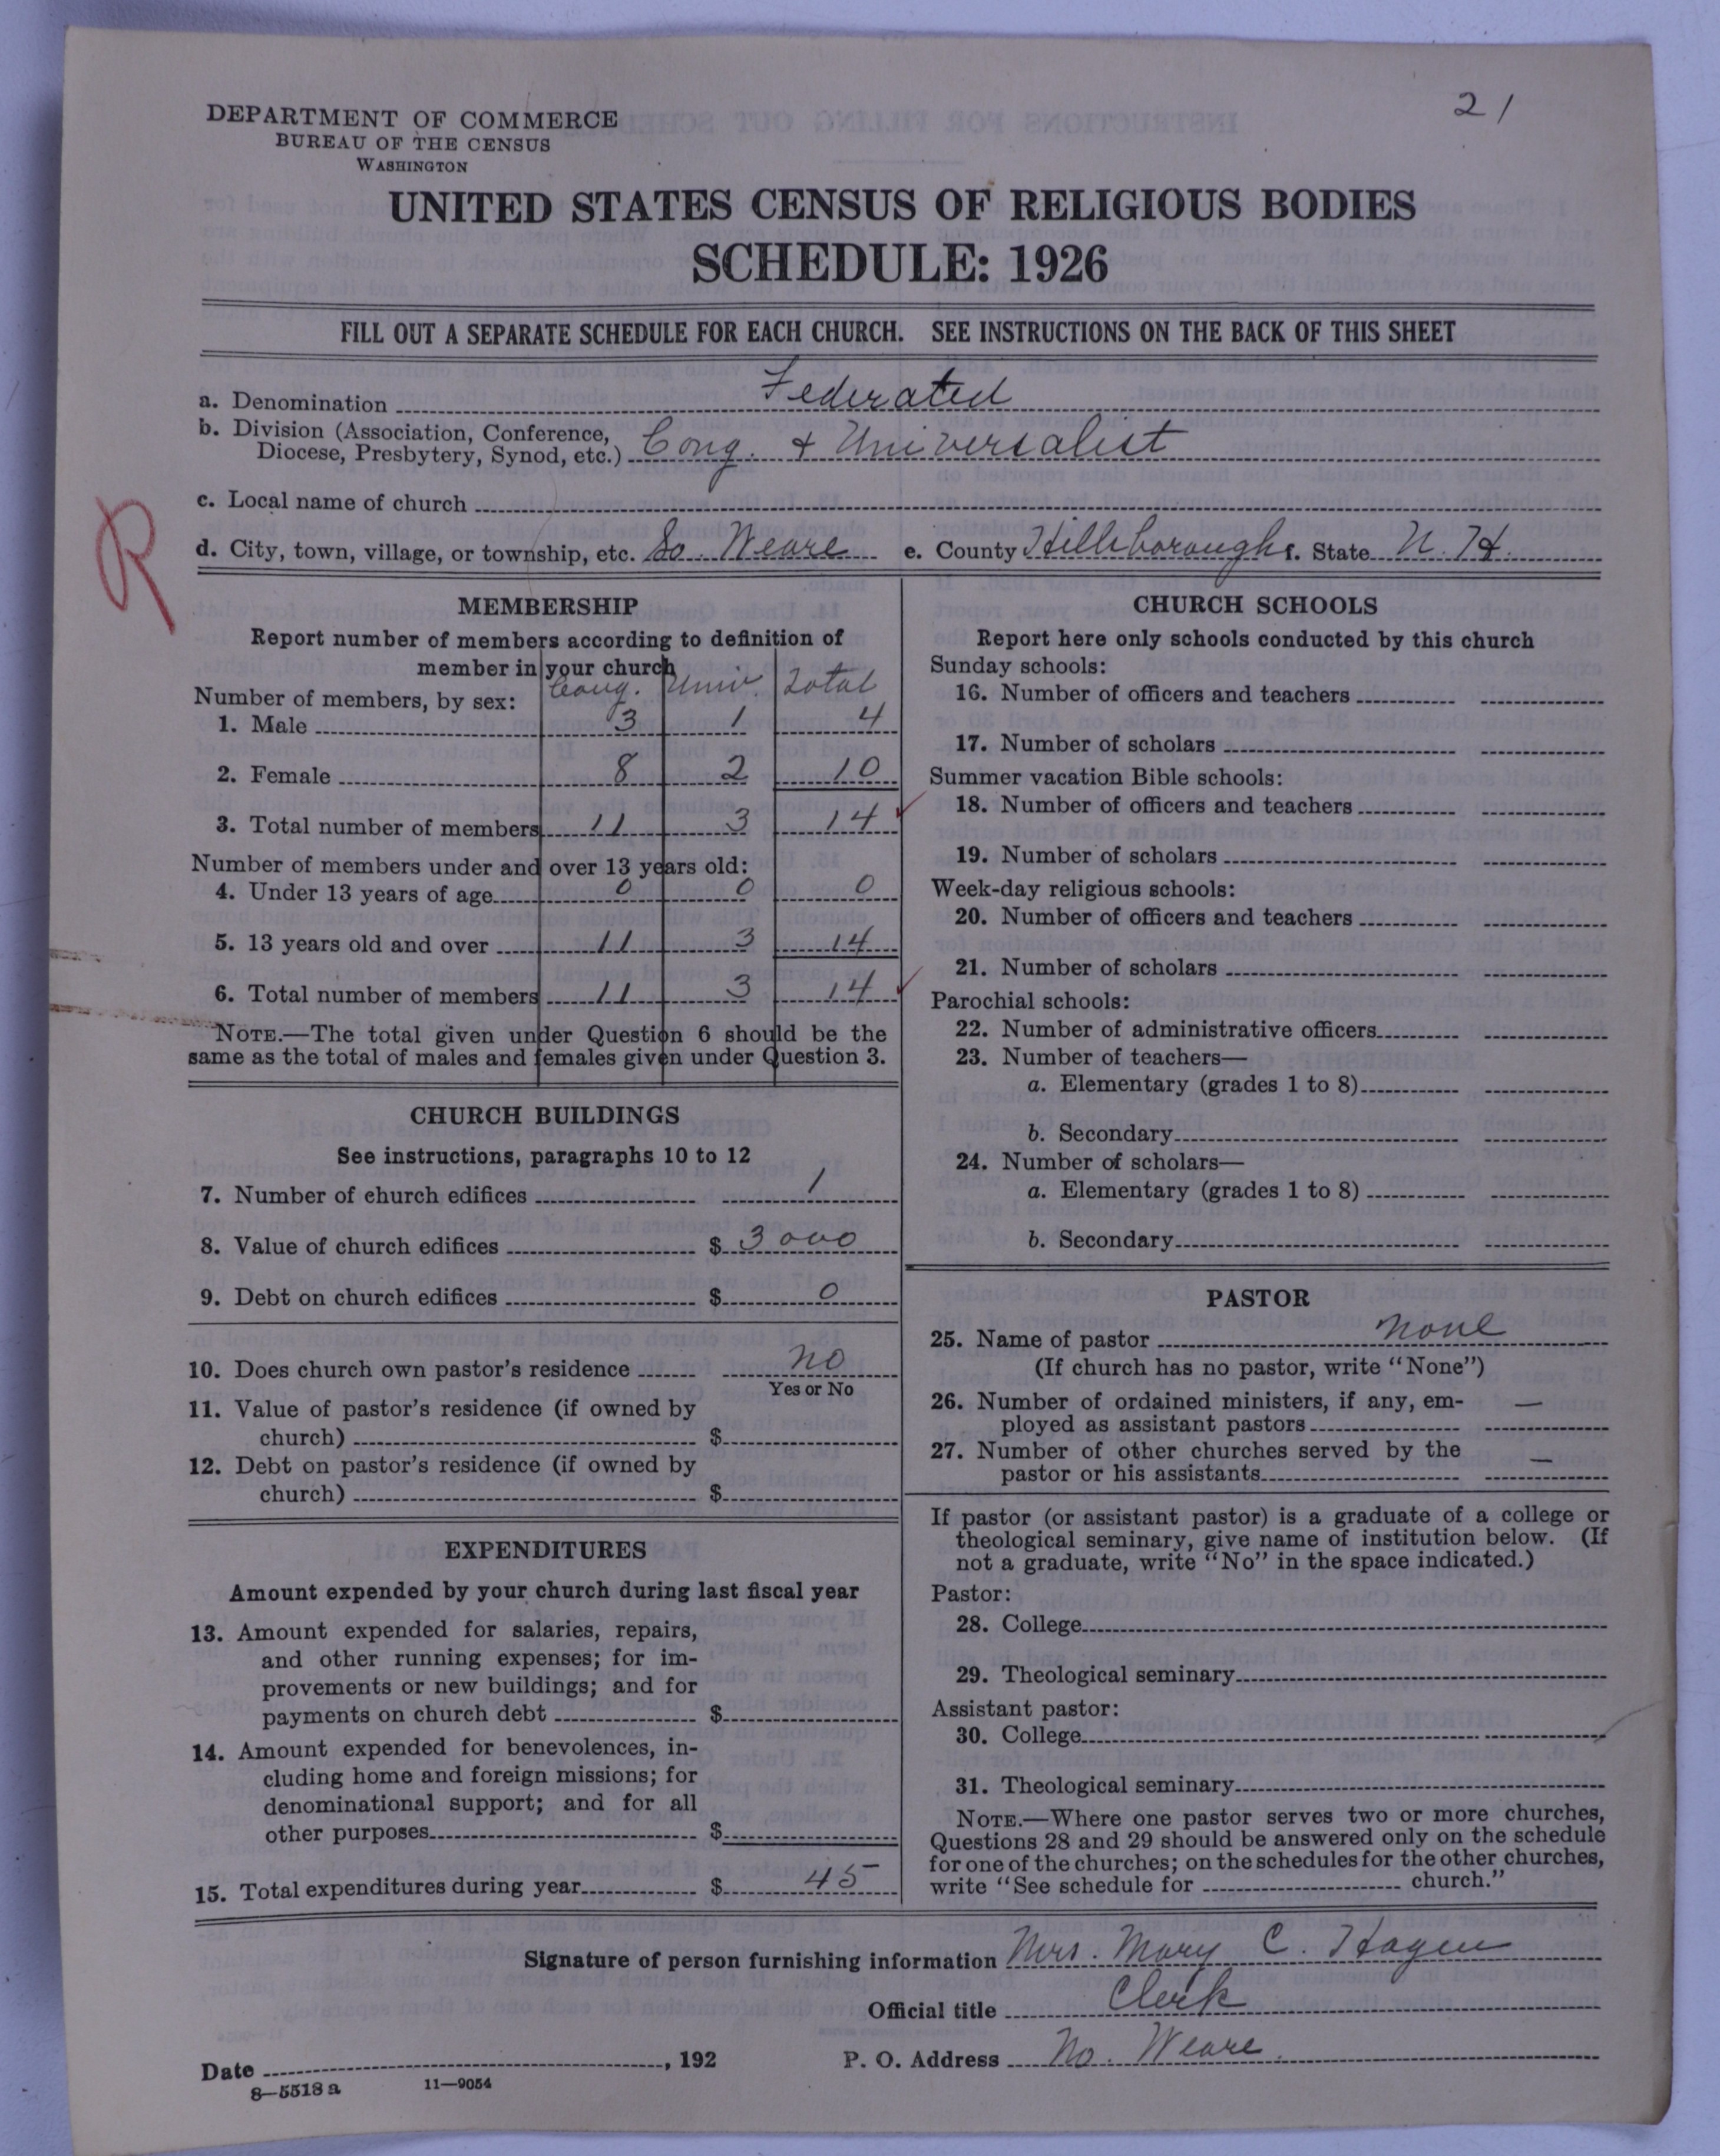 21
DEPARTMENT OF COMMERCE
BUREAU OF THE CENSUS
WASHINGTON
UNITED STATES CENSUS OF RELIGIOUS BODIES
SCHEDULE: 1926
FILL OUT A SEPARATE SCHEDULE FOR EACH CHURCH. SEE INSTRUCTIONS ON THE BACK OF THIS SHEET
a. Denomination Federated
b. Division (Association, Conference,
Diocese, Presbytery, Synod, etc.) Cong. & Universalist
c. Local name of church
R
d. City, town, village, or township, etc. So. Weare e. County Hillsborough f. State N. H.
MEMBERSHIP
Report number of members according to definition of
member in your church
Cong. Univ. Total
Number of members, by sex:
1. Male 3 1 4
2. Female 8 2 10
3. Total number of members 11 3 14
Number of members under and over 13 years old:
4. Under 13 years of age 0 0 0
5. 13 years old and over 11 3 14
6. Total number of members 11 3 14
NOTE.—The total given under Question 6 should be the
same as the total of males and females given under Question 3.
CHURCH BUILDINGS
See instructions, paragraphs 10 to 12
7. Number of church edifices 1
8. Value of church edifices $ 3000
9. Debt on church edifices $ 0
10. Does church own pastor's residence no
Yes or No
11. Value of pastor's residence (if owned by
church) $
12. Debt on pastor's residence (if owned by
church) $
EXPENDITURES
Amount expended by your church during last fiscal year
13. Amount expended for salaries, repairs,
and other running expenses; for im-
provements or new buildings; and for
payments on church debt $
14. Amount expended for benevolences, in-
cluding home and foreign missions; for
denominational support; and for all
other purposes $
15. Total expenditures during year $ 45
CHURCH SCHOOLS
Report here only schools conducted by this church
Sunday schools:
16. Number of officers and teachers
17. Number of scholars
Summer vacation Bible schools:
18. Number of officers and teachers
19. Number of scholars
Week-day religious schools:
20. Number of officers and teachers
21. Number of scholars
Parochial schools:
22. Number of administrative officers
23. Number of teachers—
a. Elementary (grades 1 to 8)
b. Secondary
24. Number of scholars—
a. Elementary (grades 1 to 8)
b. Secondary
PASTOR
25. Name of pastor None
(If church has no pastor, write "None")
26. Number of ordained ministers, if any, em- —
ployed as assistant pastors
27. Number of other churches served by the
pastor or his assistants —
If pastor (or assistant pastor) is a graduate of a college or
theological seminary, give name of institution below. (If
not a graduate, write "No" in the space indicated.)
Pastor:
28. College
29. Theological seminary
Assistant pastor:
30. College
31. Theological seminary
NOTE.—Where one pastor serves two or more churches,
Questions 28 and 29 should be answered only on the schedule
for one of the churches; on the schedules for the other churches,
write "See schedule for church."
Signature of person furnishing information Mrs. Mary C. Hagen
Official title Clerk
Date , 192 P. O. Address No. Weare.
8—5518 a 11—9054